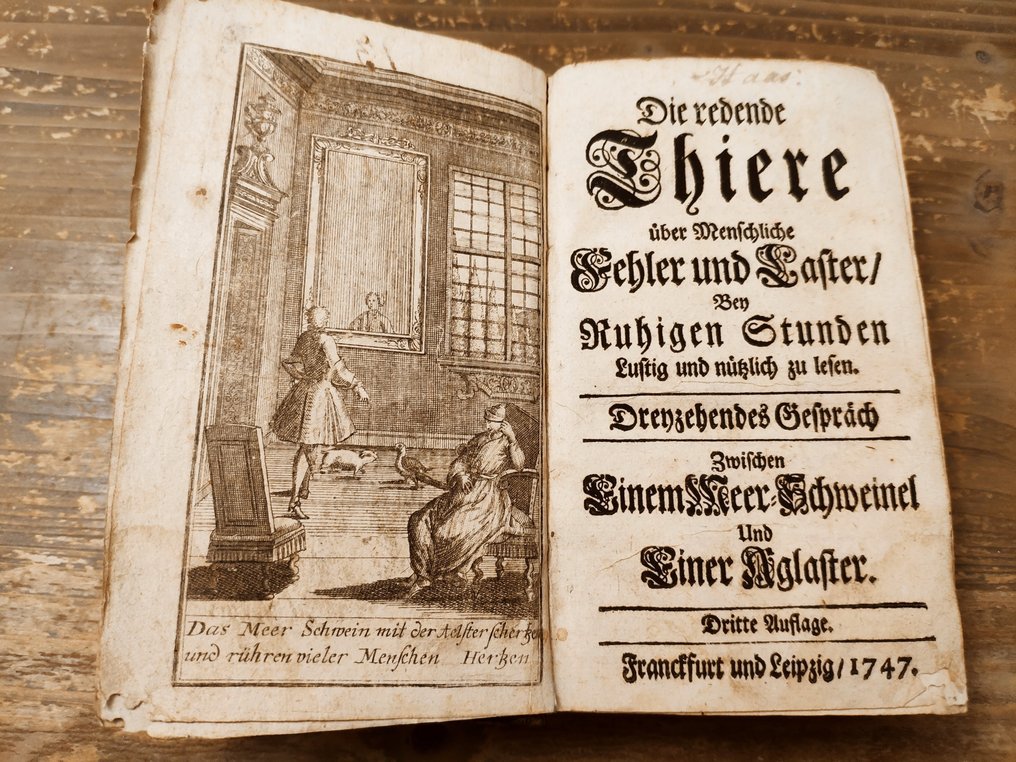 Das Meer Schwein mit der Aelster schertze
und rühren vieler Menschen Hertzen
Haas
Die redende
Thiere
über Menschliche
Fehler und Laster/
Bey
Ruhigen Stunden
Lustig und nützlich zu lesen.
Dreyzehendes Gespräch
Zwischen
Einem Meer-Schweinel
Und
Einer Aglaster.
Dritte Auflage.
Franckfurt und Leipzig/ 1747.